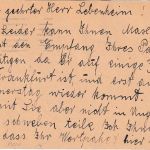 geehrter Herr Lebenheim
Leider kann Ihnen
den Empfang Ihres
tigen da Er auf einige
Frankfurt ist und erst
nerstag wieder kommt.
mit Sie aber nicht in Ung
schweben teile Ich Ihnen
dass Ihr hier